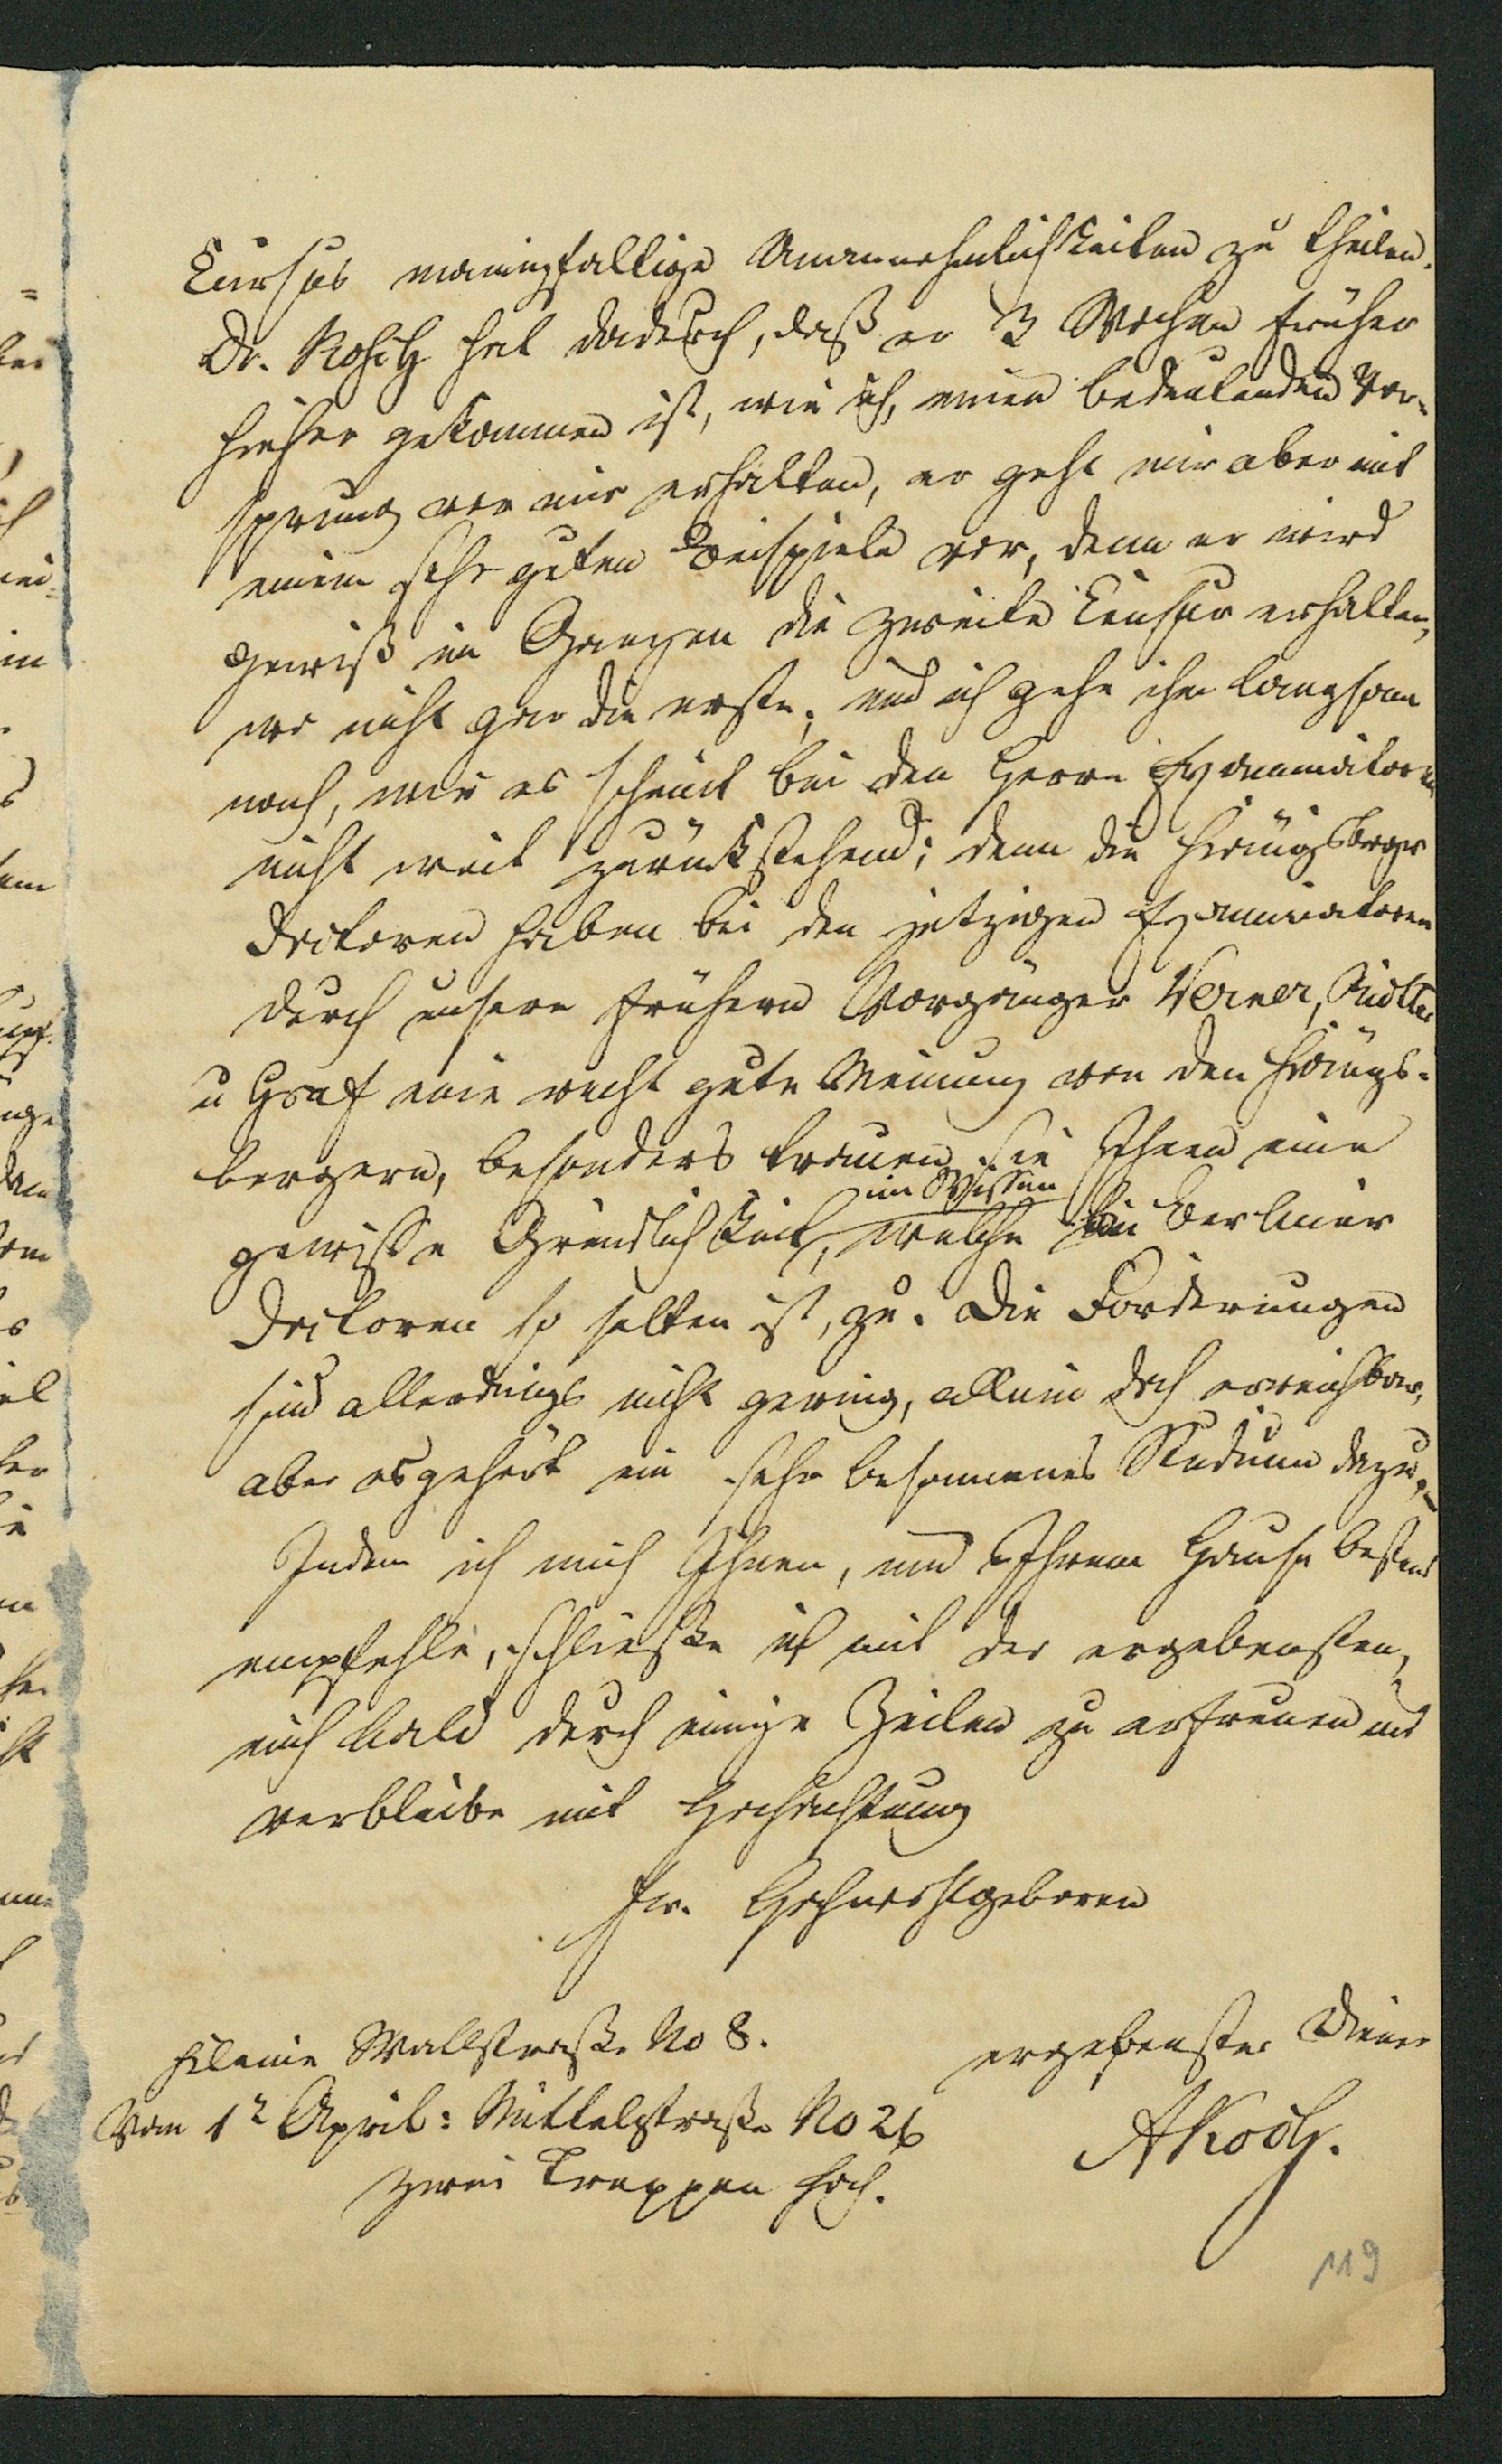 Cursus mannigfaltige Unannehmlichkeiten zu theilen.
Dr. Kosch hat dadurch, daß er 3 Wochen früher
hieher gekommen ist, wie ich, einen bedeutenden Vor-
sprung vor mir erhalten, er geht mir aber mit
einem sehr guten Beispiele vor, denn er wird
gewiß im Ganzen die zweite Censur erhalten,
wo nicht gar die erste; und ich gehe ihm langsam
nach, wie es scheint bei den Herrn Examinatoren
nicht weit zurückstehend; denn die Königsberger
Doctoren haben bei den jetzigen Examinatoren
durch unsere frühern Vorgänger Werner,
u Graf eine recht gute Meinung von den Königs-
bergern, besonders trauen sie Ihnen eine
gewisse Gründlichkeit im Wissen, welche bei Berliner
Doctoren so selten ist, zu. Die Forderungen
sind allerdings nicht gering, allein doch erreichbar,
aber es gehört ein sehr besonnenes Studium dazu.
Indem ich mich Ihnen, und Ihrem Hause bestens
empfehle, schließe ich mit der ergebensten,
mich bald durch einige Zeilen zu erfreuen und
verbleibe mit Hochachtung
Ew. Hochwohlgeboren
ergebenster Diener
Kleine Wallstraße No 8.
Vom 1t April: Mittelstraße No 26
zwei Treppen hoch.
AKoch.
119